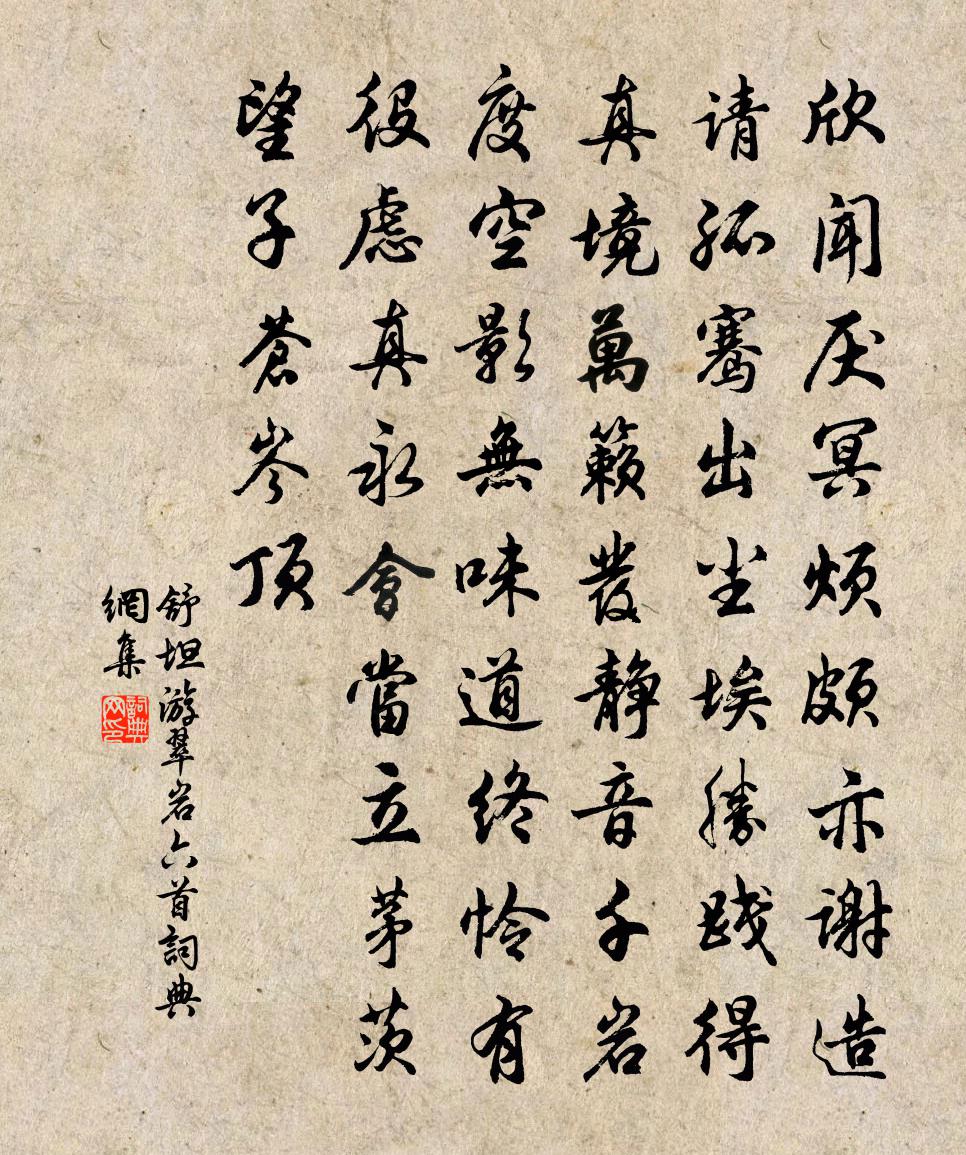 欣闻厌冥烦颇亦谢造
请孤骞出尘埃胜践得
真境萬籟發静音千岩
度空影無味道终怜有
役慮真永會當立茅茨
望子蒼岑顶
舒坦游翠岩六首詞典
網集
詞典网印